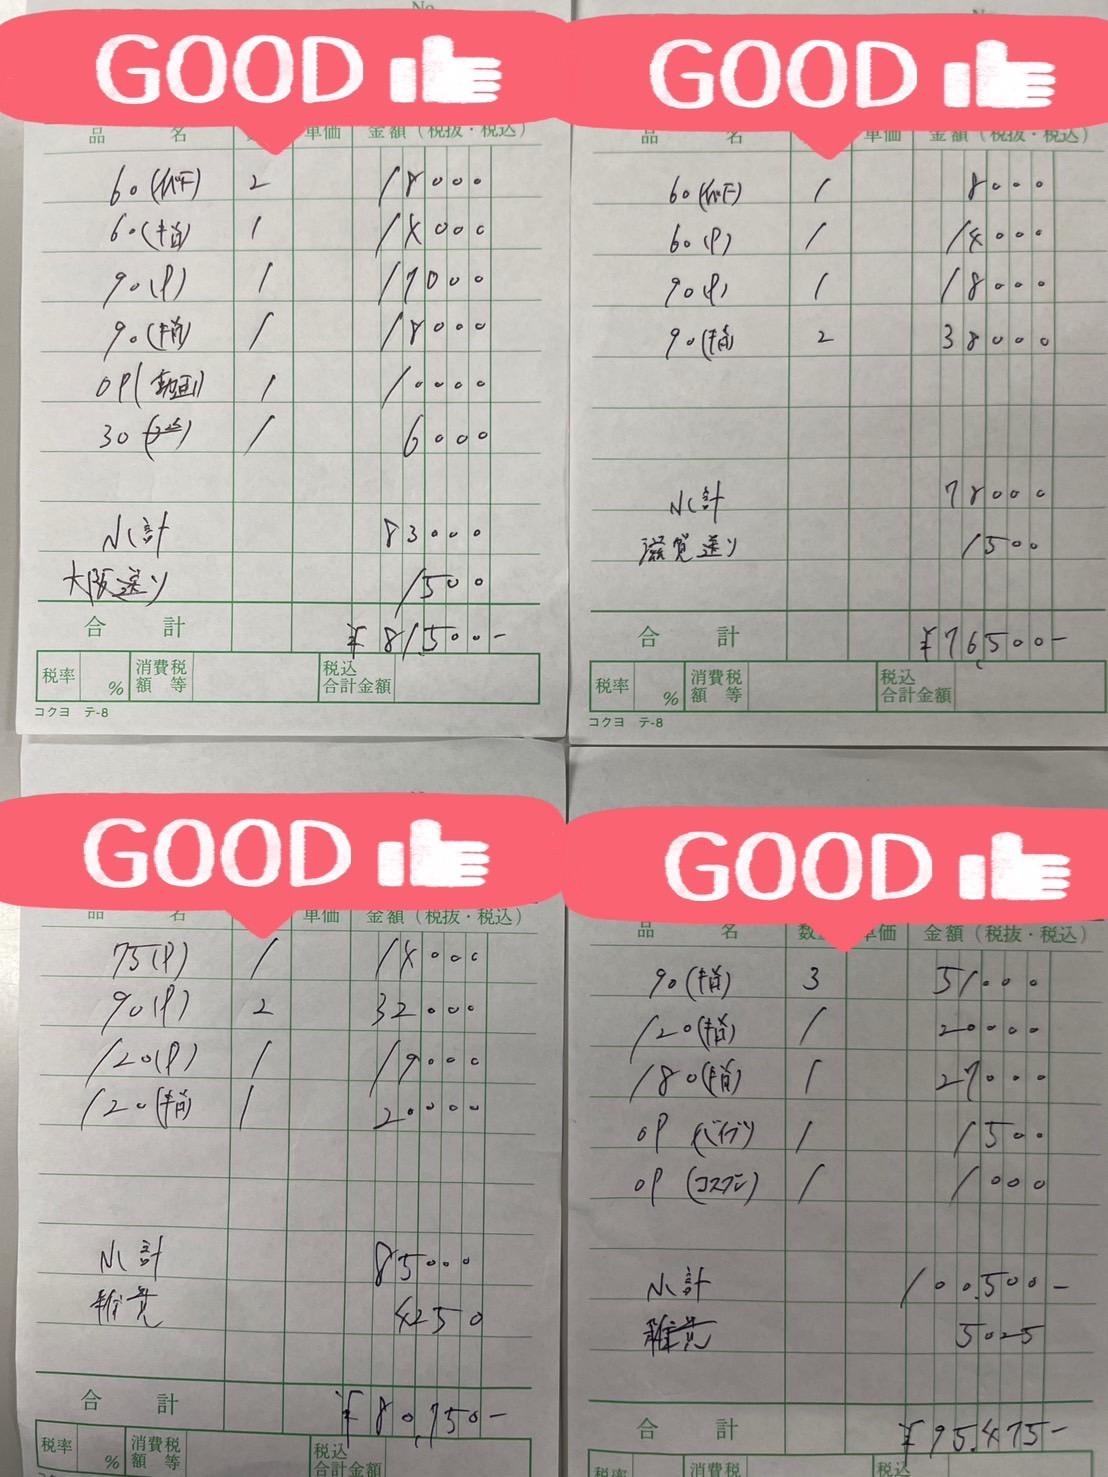 No.
GOOD
品 名 単価 金額(税抜・税込)
60( ) 2 18000
60(指) 1 14000
90(P) 1 17000
90(指) 1 18000
OP(動画) 1 10000
30( ) 1 6000
小計 83000
大阪送り 1500
合 計 ¥81,500-
税率 % 消費税額等 税込合計金額
コクヨ テ-8
GOOD
品 名 単価 金額(税抜・税込)
60( ) 1 8000
60(P) 1 14000
90(P) 1 18000
90(指) 2 38000
小計 78000
滋賀送り 1500
合 計 ¥76,500-
税率 % 消費税額等 税込合計金額
コクヨ テ-8
GOOD
品 名 単価 金額(税抜・税込)
75(P) 1 14000
90(P) 2 32000
120(P) 1 19000
120(指) 1 20000
小計 85000
雑費 4250
合 計 ¥80,750-
税率 % 消費税額等 税込合計金額
GOOD
品 名 数 単価 金額(税抜・税込)
90(指) 3 51000
120(指) 1 20000
180(指) 1 27000
OP (バイブ) 1 1500
OP (コスプレ) 1 1000
小計 100,500-
雑費 5025
合 計 ¥95,475-
税率 消費税 税込